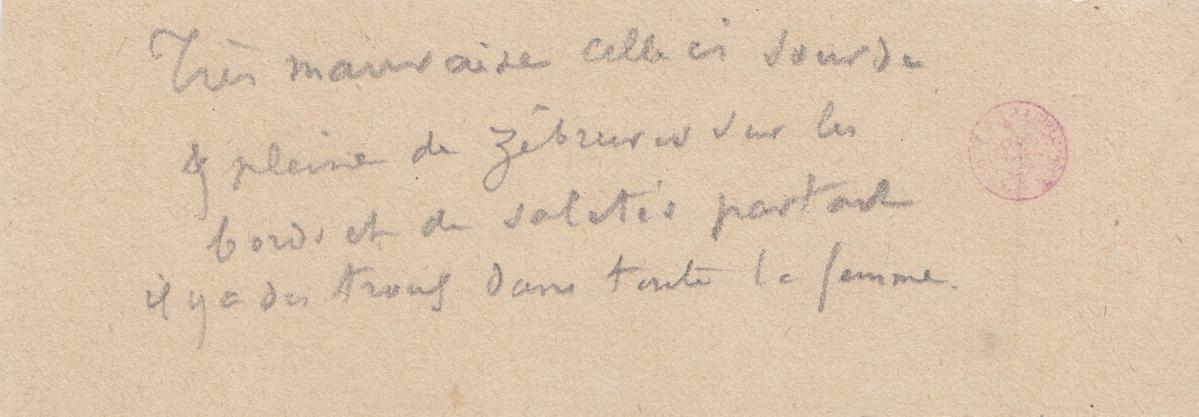 Très mauvaise celle ci sourde
& pleine de zébrures sur les
bords et de saletés partout
il y a des trous dans toute la femme.